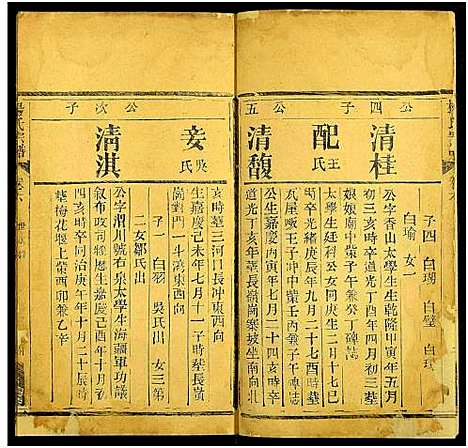 子四 白瑚 白璧 白璐
白瑜 女一
公四子
清桂
公字香山太學生生乾隆甲寅年五月
初三亥時卒道光丁酉年四月初三葬
娘娘廟中塋子午兼癸丁碑誌
配王氏
太學生廷柯公女同庚生二月十七巳
時卒光緒庚辰年九月二十七酉時葬
瓦屋
中塋壬丙兼子午碑誌
公五
清馥
生嘉慶丙辰年七月二十七
道光丁亥年葬長嶺崗寨坡坐南向北
亥時葬三河口長冲東西向
妾吳氏
生嘉慶己未年七月十一 時葬長嶺
崗對門一斗灣東西向
子一 白羽 吳氏出 女三第
二女鄒氏出
公次子
清淇
公字渭川號右泉太學生海疆軍功議
敘布政司經歷生嘉慶己酉年十月
四亥時卒同治庚午年十月二十辰時
葬梅花堰上塋酉卯兼乙辛